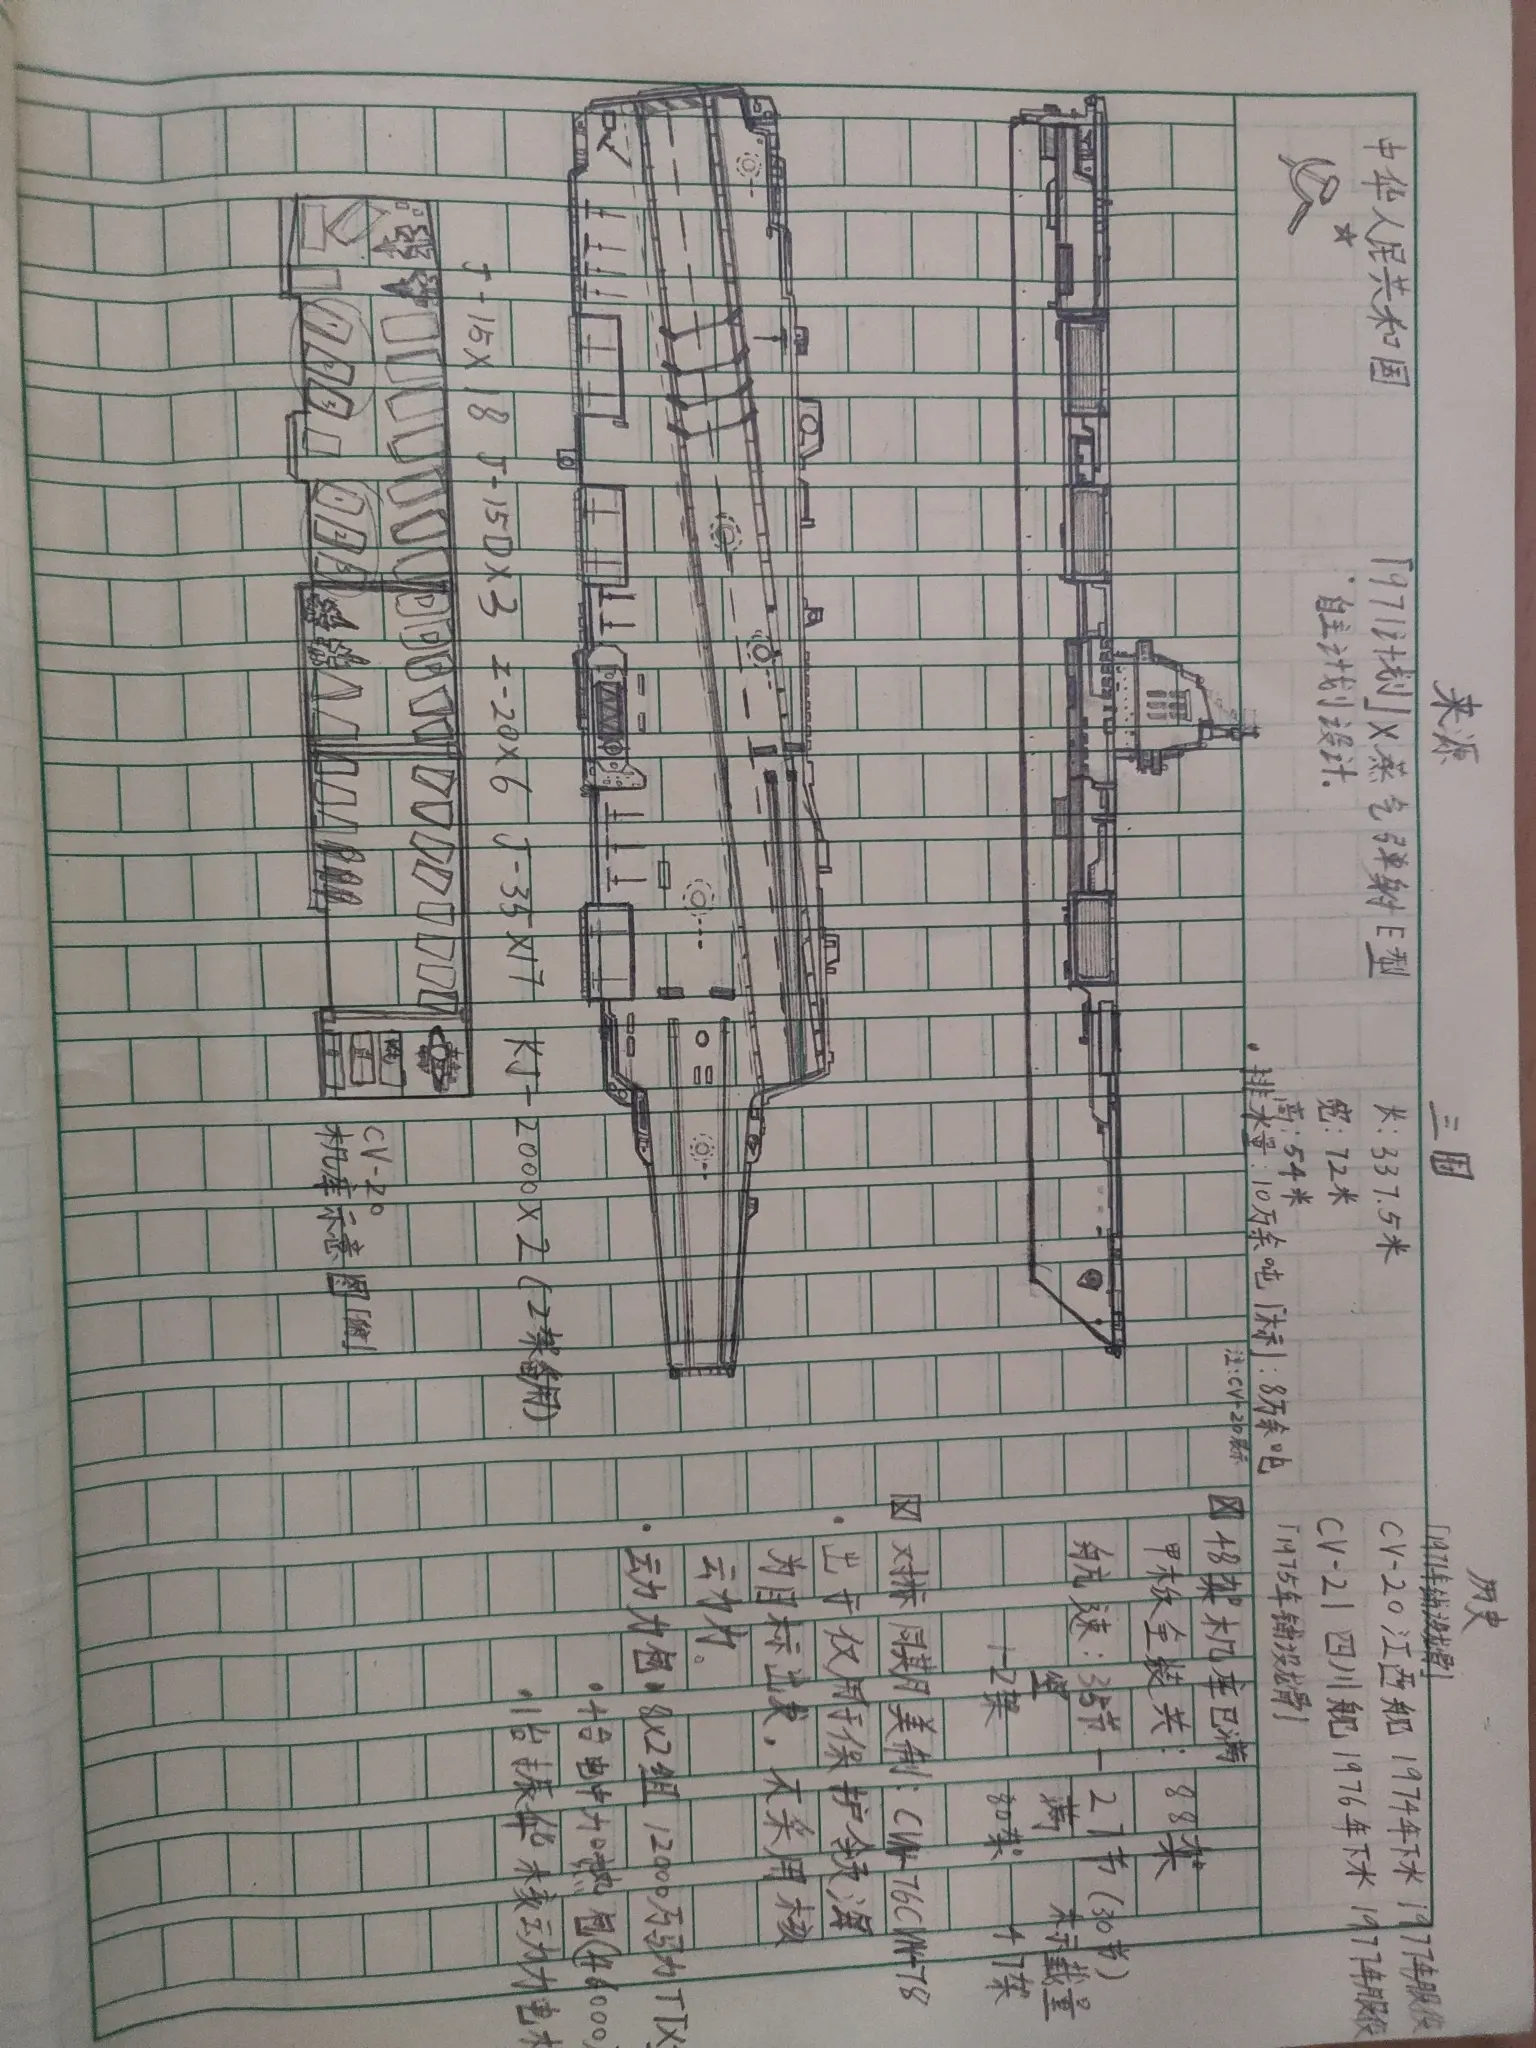 来源
三围
历史
中华人民共和国
「971计划」X蒸气弹射E型
·自主计划设计.
长:337.5米
宽:72米
高:54米
·排水量:10万余吨「标」:8万余吨
注:CV-20展示
「1971年铺设龙骨」
CV-20 江西舰 1974年下水 1977年服役
CV-21 四川舰 1976年下水 1977年服役
「1975年铺设龙骨」
48架机库已满
甲板全装共:88架
航速:35节-27节(30节)
空 满 未示载量
1-2架 80架 47架
对标同期美制:CVN-76CVN-78
·出于仅用于保护领海
为目标出发,不采用核
动力。
·动力包·8X2组 12000万马力TTX
·4台电中加热包
·1台泰华未核动力电
J-15X18 J-15DX3 Z-20X6 J-35X17 KJ-2000X2(2架备用)
CV-20
机库示意图「俯」